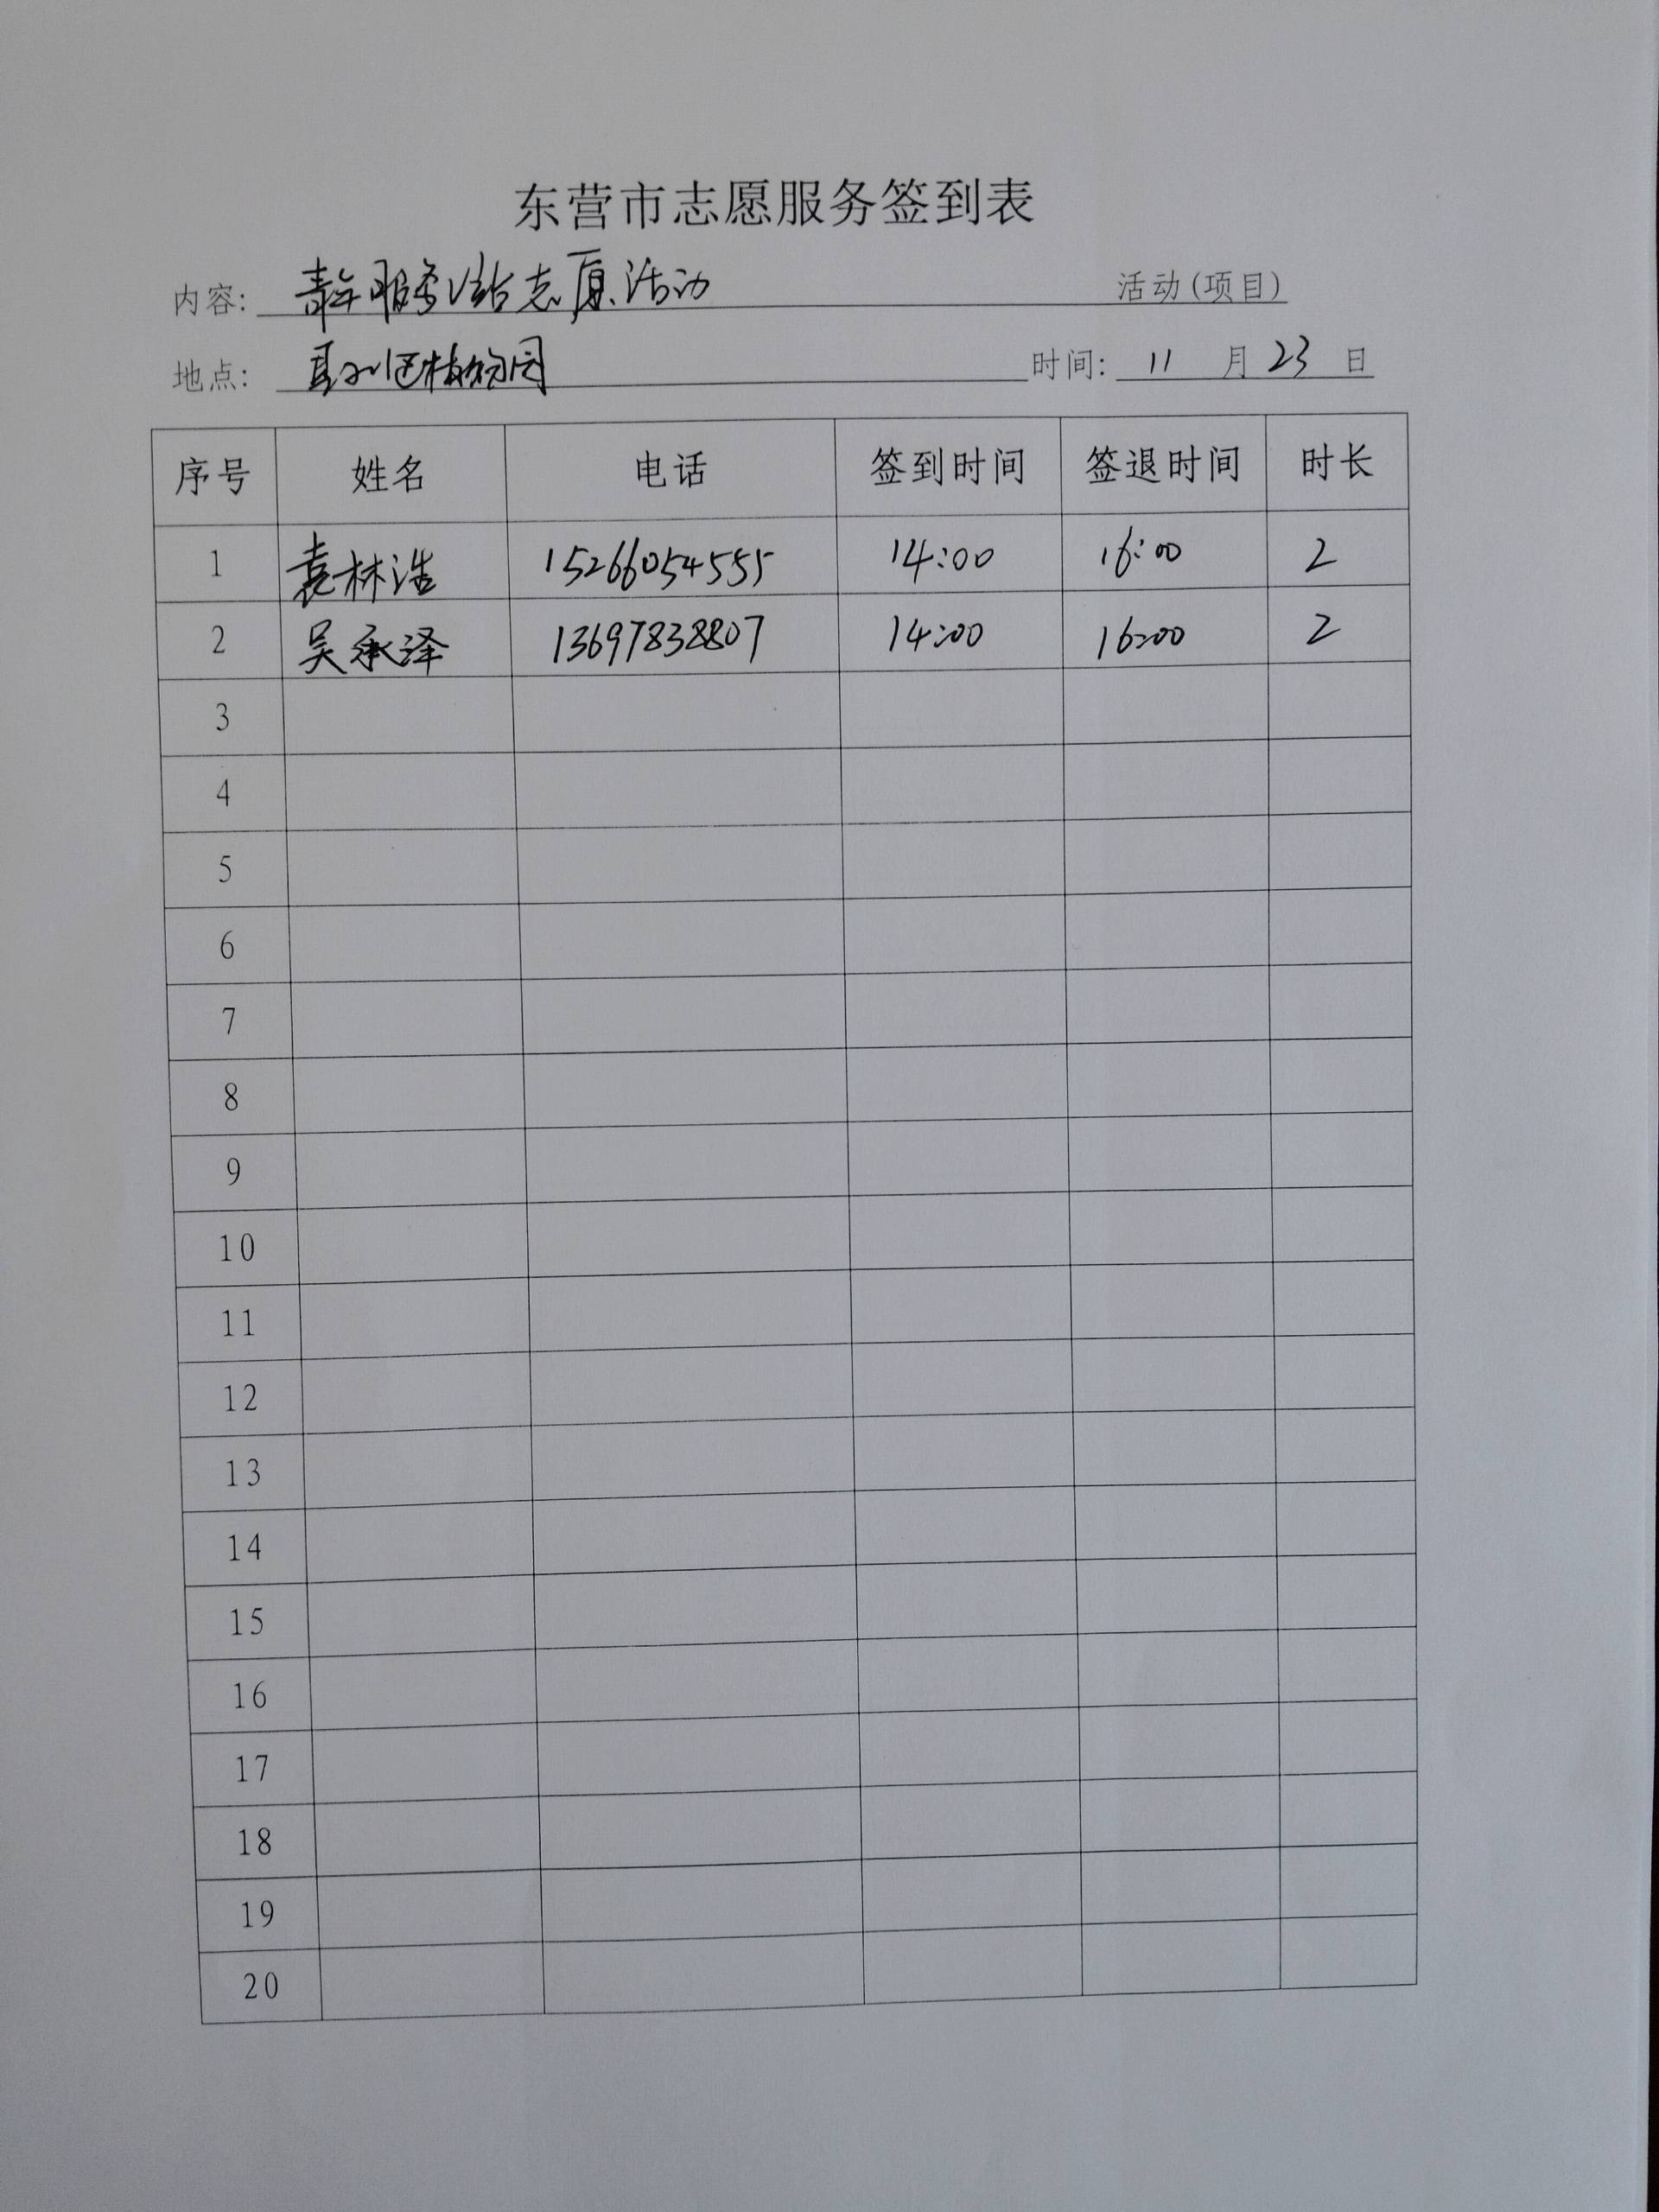 东营市志愿服务签到表
内容: 青年服务V站志愿活动 活动(项目)
地点: 垦利区植物园 时间: 11 月 23 日
序号 姓名 电话 签到时间 签退时间 时长
1 袁林浩 15266054555 14:00 16:00 2
2 吴承泽 13697838807 14:00 16:00 2
3
4
5
6
7
8
9
10
11
12
13
14
15
16
17
18
19
20